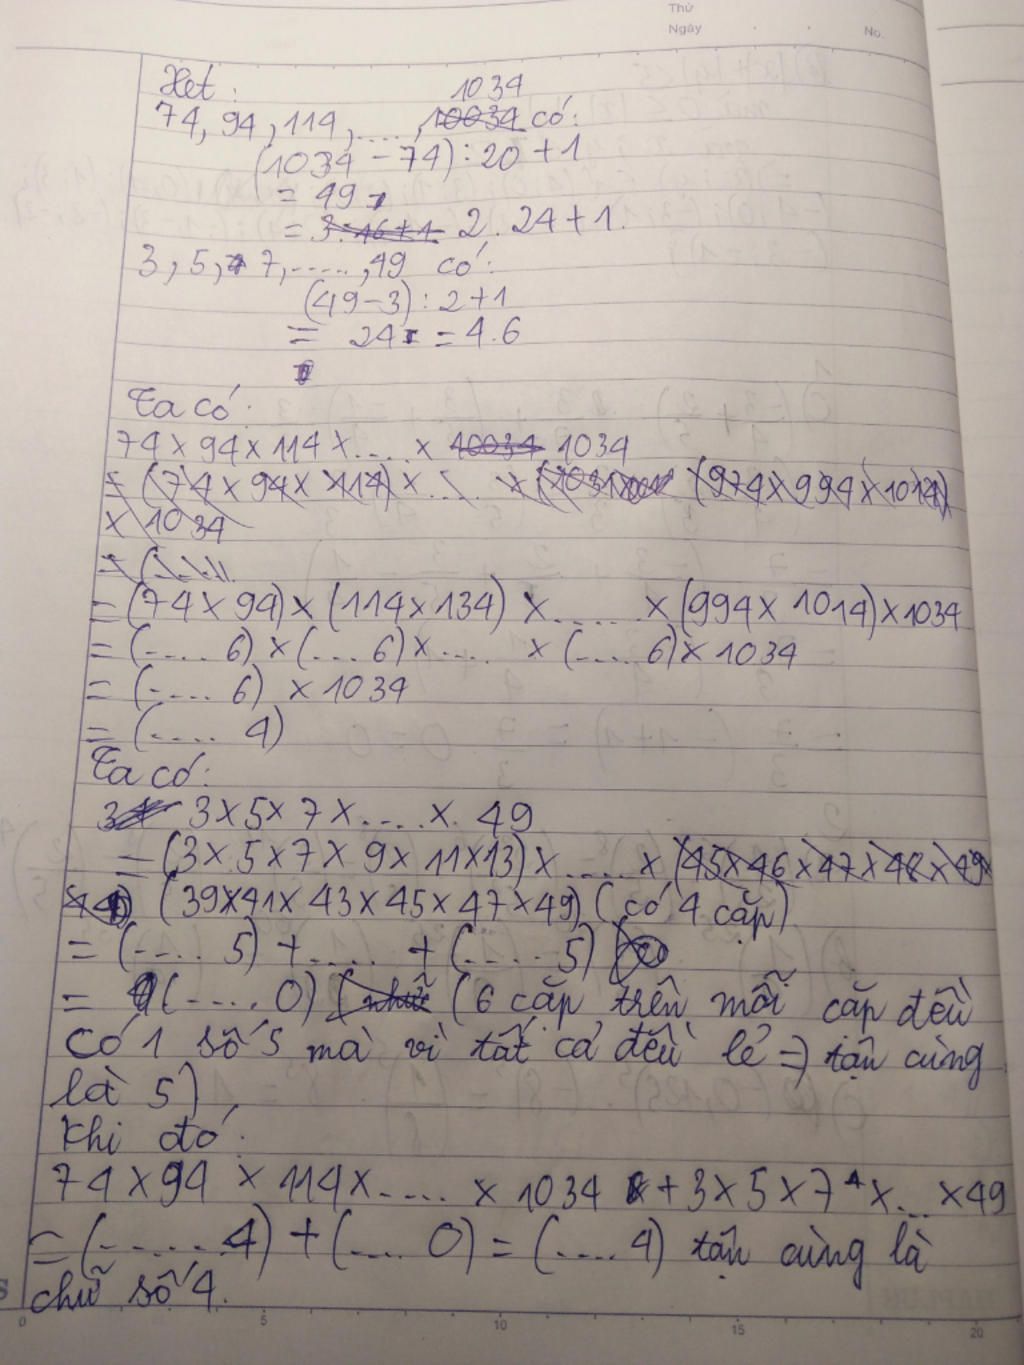 Thứ
Ngày . . No.
Xét :
1034
74, 94, 114, ....., 10034 có:
(1034 - 74) : 20 + 1
= 49
= 3.16+1 2. 24 + 1.
3, 5, 7, ....., 49 có:
(49-3) : 2+1
= 24 = 4.6
Ta có:
74 x 94 x 114 x .... x 10034 1034
= (74 x 94 x 114) x ... x (974 x 994 x 1014)
x 1034
= (.....
= (74 x 94) x (114 x 134) x ..... x (994 x 1014) x 1034
= (.... 6) x (... 6) x .... x (.... 6) x 1034
= (.... 6) x 1034
= (.... 4)
Ta có:
3 x 5 x 7 x .... x. 49
= (3 x 5 x 7 x 9 x 11 x 13) x ..... x (45 x 46 x 47 x 48 x 49
(39 x 41 x 43 x 45 x 47 x 49) (có 4 cặp)
= (.... 5) + .... + (.... 5)
= (.... 0) (như (6 cặp trên mỗi cặp đều
có 1 số 5 mà vì tất cả đều lẻ => tận cùng
là 5)
Khi đó:
74 x 94 x 114 x .... x 1034 + 3 x 5 x 7 x ... x 49
= (..... 4) + (.... 0) = (.... 4) tận cùng là
chữ số 4.
0 5 10 15 20